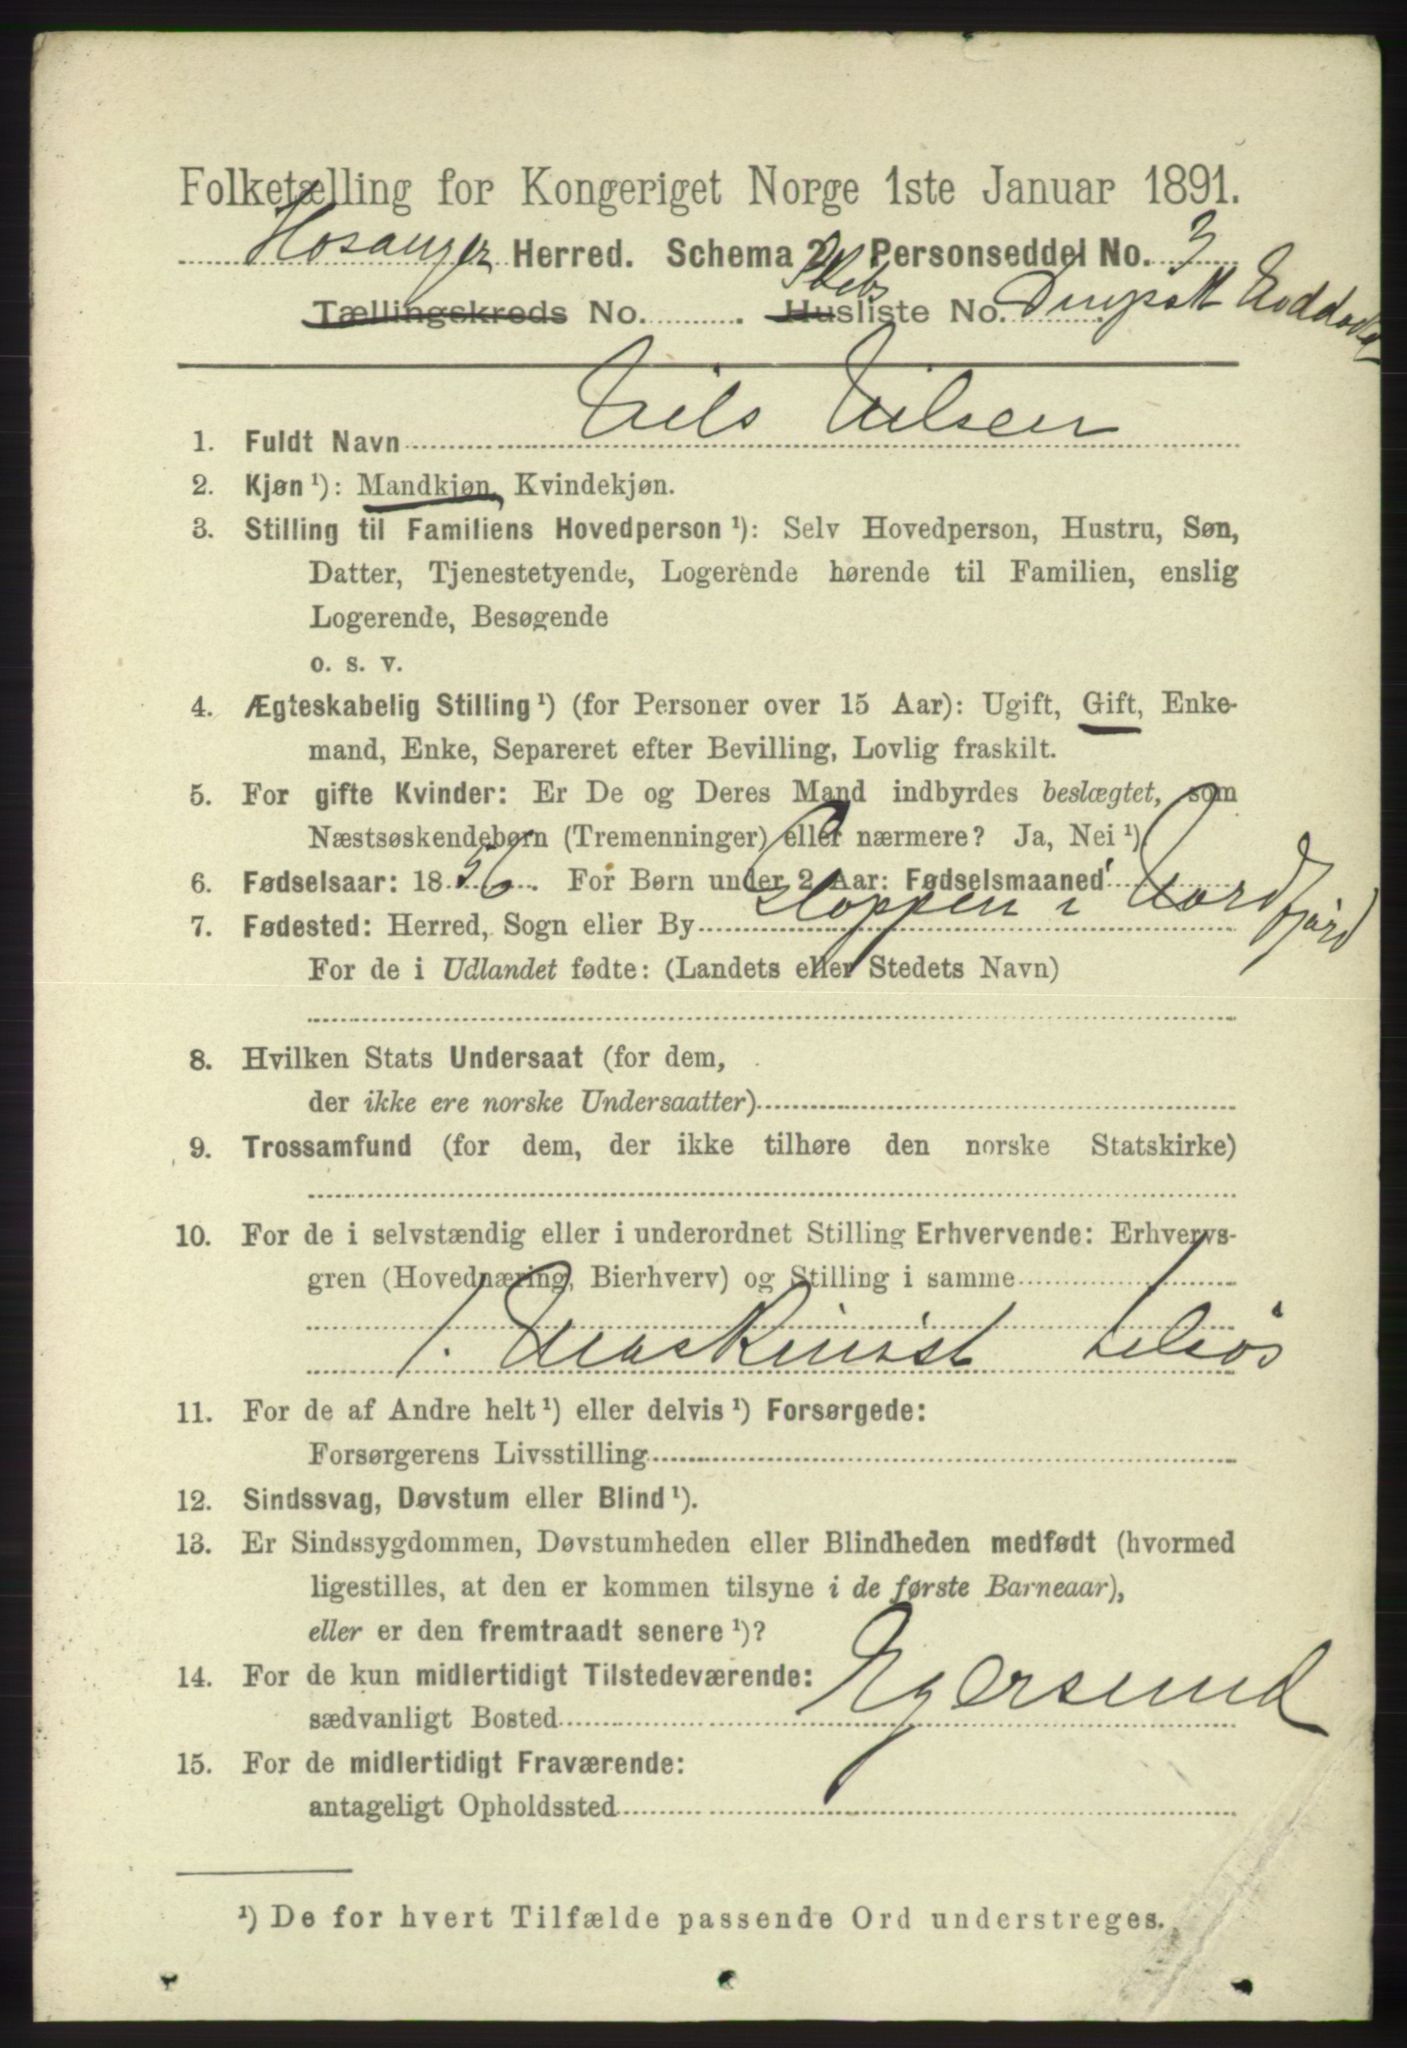 Folketælling for Kongeriget Norge 1ste Januar 1891.
Hosanger Herred. Schema 2. Personseddel No. 3
Skibs
Tællingskreds No. Husliste No.
1. Fuldt Navn Nils Nilsen
2. Kjøn ¹): Mandkjøn, Kvindekjøn.
3. Stilling til Familiens Hovedperson ¹): Selv Hovedperson, Hustru, Søn,
Datter, Tjenestetyende, Logerende hørende til Familien, enslig
Logerende, Besøgende
o. s. v.
4. Ægteskabelig Stilling ¹) (for Personer over 15 Aar): Ugift, Gift, Enke-
mand, Enke, Separeret efter Bevilling, Lovlig fraskilt.
5. For gifte Kvinder: Er De og Deres Mand indbyrdes beslægtet, som
Næstsøskendebørn (Tremenninger) eller nærmere? Ja, Nei ¹)
6. Fødselsaar: 1856. For Børn under 2 Aar: Fødselsmaaned
7. Fødested: Herred, Sogn eller By Gloppen i Nordfjord
For de i Udlandet fødte: (Landets eller Stedets Navn)
8. Hvilken Stats Undersaat (for dem,
der ikke ere norske Undersaatter)
9. Trossamfund (for dem, der ikke tilhøre den norske Statskirke)
10. For de i selvstændig eller i underordnet Stilling Erhvervende: Erhvervs-
gren (Hovednæring, Bierhverv) og Stilling i samme
1. Maskinist tilsjøs
11. For de af Andre helt ¹) eller delvis ¹) Forsørgede:
Forsørgerens Livsstilling
12. Sindssvag, Døvstum eller Blind ¹).
13. Er Sindssygdommen, Døvstumheden eller Blindheden medfødt (hvormed
ligestilles, at den er kommen tilsyne i de første Barneaar),
eller er den fremtraadt senere ¹)?
14. For de kun midlertidigt Tilstedeværende:
sædvanligt Bosted Egersund
15. For de midlertidigt Fraværende:
antageligt Opholdssted
¹) De for hvert Tilfælde passende Ord understreges.